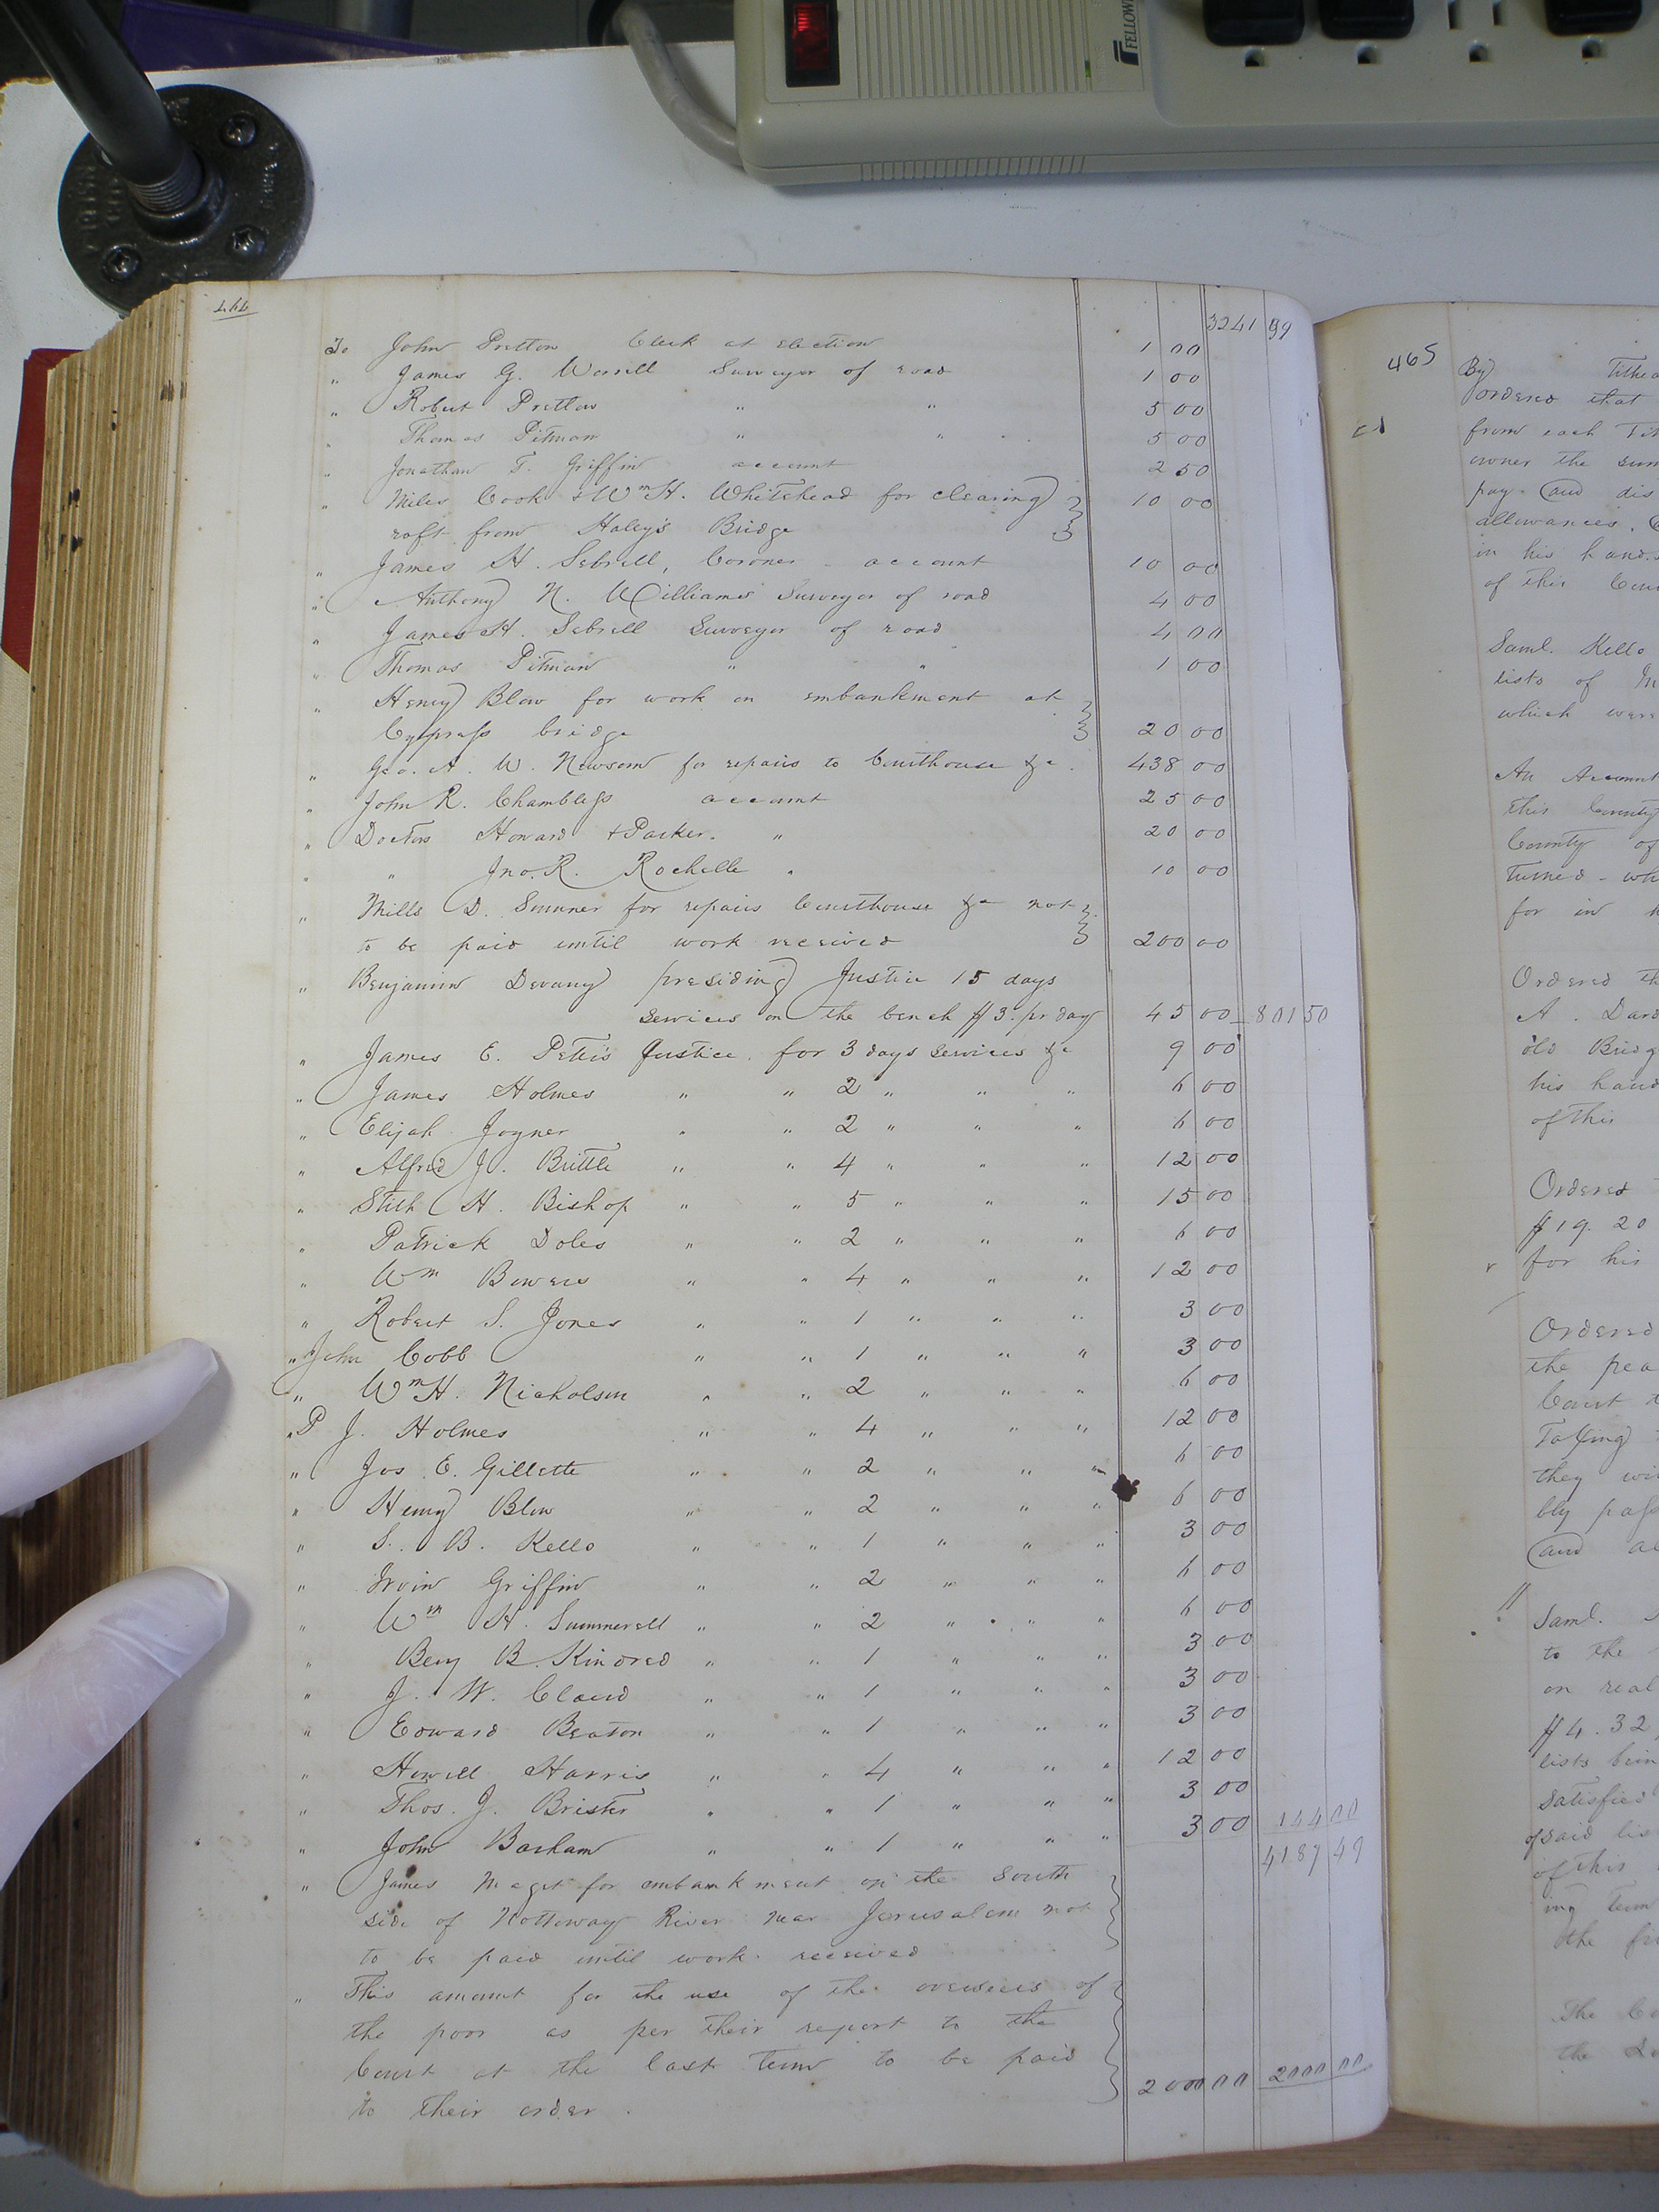 FELLOWE
464
3241 99
To John Pretlow Clerk at election 1 00
" James G. Worrell Surveyor of road 1 00
" Robert Pretlow " " 5 00
" Thomas Pitman " " 5 00
" Jonathan T. Griffin account 2 50
" Miles Cook & Wm H. Whitehead for clearing 10 00
raft from Haley's Bridge
" James H. Sebrell, Coroner account 10 00
" Anthony N. Williams Surveyor of road 4 00
" James H. Sebrell Surveyor of road 4 00
" Thomas Pitman " " 1 00
" Henry Blow for work on embankment at
Cypress bridge 20 00
" Geo. A. W. Newsom for repairs to Courthouse &c. 438 00
" John R. Chambless account 25 00
" Doctors Howard & Parker. " 20 00
" " Jno. R. Rochelle " 10 00
" Mills D. Sumner for repairs Courthouse &c not
to be paid until work received 200 00
" Benjamin Devany presiding Justice 15 days
services on the bench $3. pr day 45 00 801 50
" James E. Pettis Justice for 3 days services &c 9 00
" James Holmes " " 2 " " " 6 00
" Elijah Joyner " " 2 " " " 6 00
" Alfred J. Brittle " " 4 " " " 12 00
" Stith H. Bishop " " 5 " " " 15 00
" Patrick Doles " " 2 " " " 6 00
" Wm Bowers " " 4 " " " 12 00
" Robert S. Jones " " 1 " " " 3 00
" John Cobb " " 1 " " " 3 00
" Wm H. Nicholson " " 2 " " " 6 00
" P J. Holmes " " 4 " " " 12 00
" Jos. E. Gillette " " 2 " " " 6 00
" Henry Blow " " 2 " " " 6 00
" S. B. Kello " " 1 " " " 3 00
" Irvin Griffin " " 2 " " " 6 00
" Wm H. Summerell " " 2 " " " 6 00
" Benj B. Kindred " " 1 " " " 3 00
" J. W. Claud " " 1 " " " 3 00
" Edward Beaton " " 1 " " " 3 00
" Howell Harris " " 4 " " " 12 00
" Thos. J. Brister " " 1 " " " 3 00
" John Barham " " 1 " " " 3 00 144 00
4187 49
" James Maget for embankment on the South
side of Nottoway River near Jerusalem not
to be paid until work received
" This amount for the use of the overseers of
the poor as per their report to the
Court at the last Term to be paid
to their order. 2000 00 2000 00
465
By Tithea
ordered that
from each Tit
owner the sum
pay and dis
allowances.
in his hands
of this Cou
Saml. Kello
lists of In
which were
An Account
this County
County of
turned - wh
for in
Ordered th
A. Dar
old Bridg
his hand
of this
Ordered
$19. 20
for his
Ordered
the pea
Court
Taking
they wi
bly pass
and al
Saml.
to the
on real
$4. 32
lists bein
satisfied
of said lis
of this
ing term
the fi
The Co
the